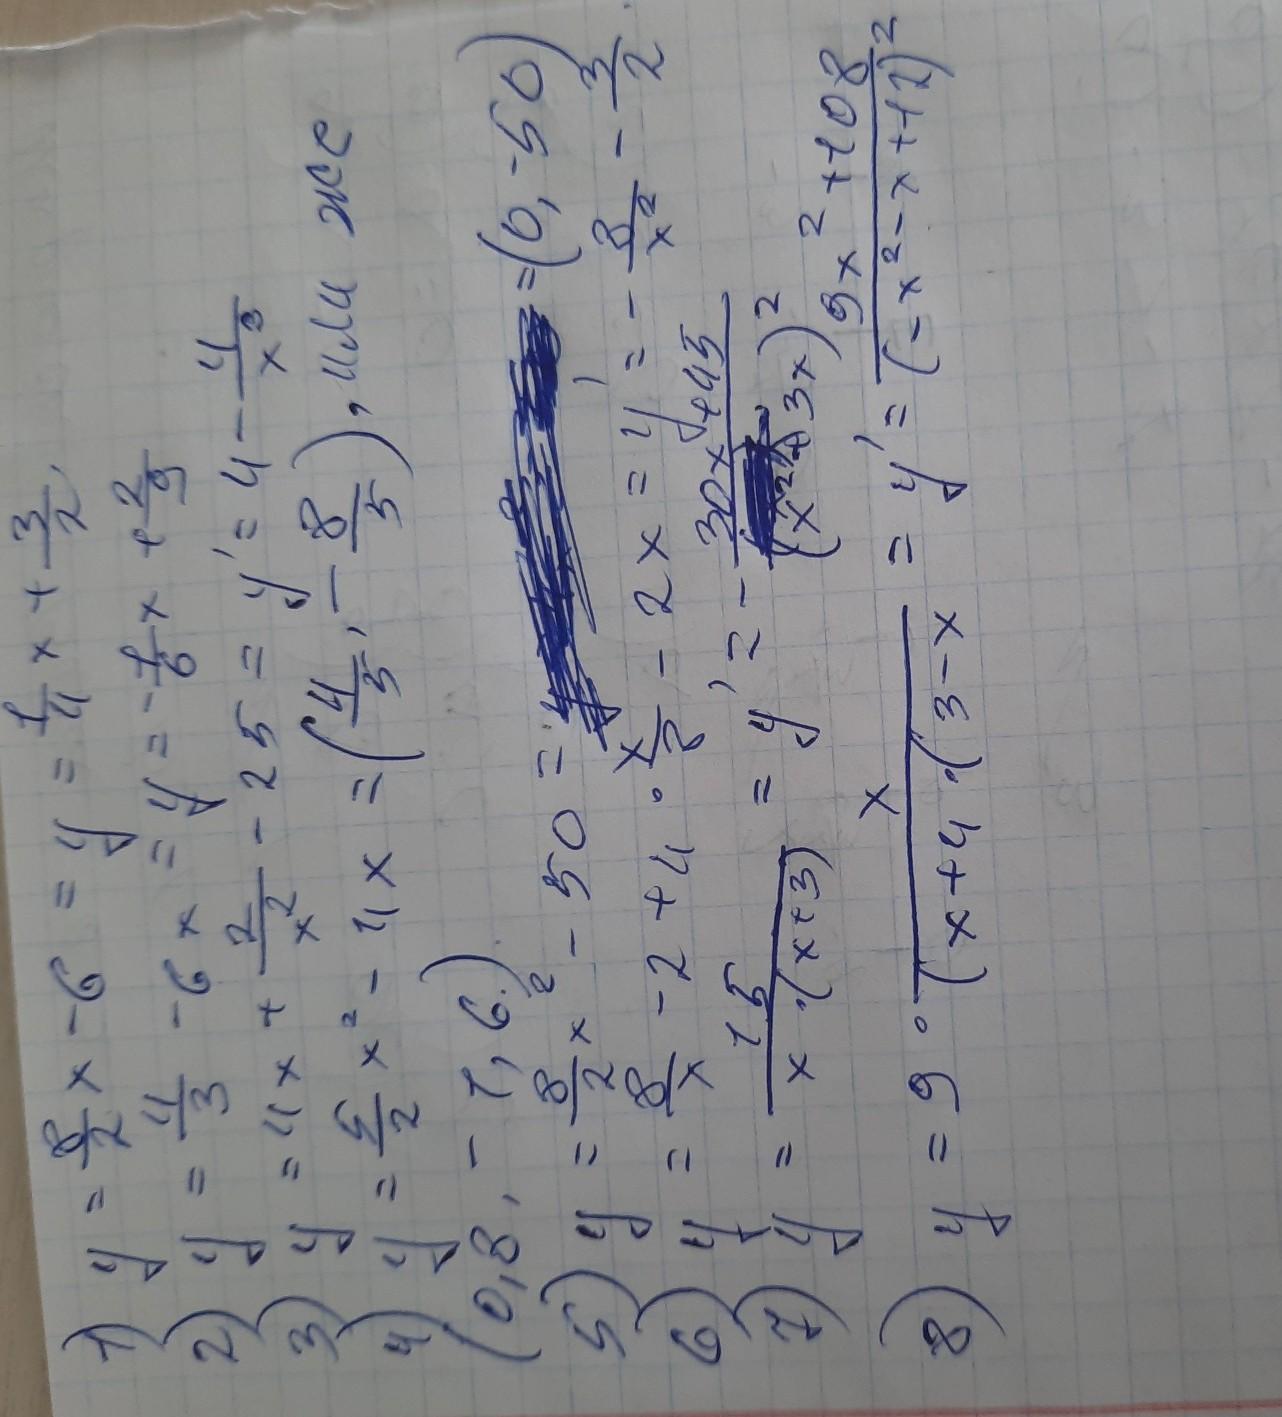 1) y = 8/2 x - 6 = y = 1/4 x + 3/2,
2) y = 4/3 - 6x = y = -1/6 x + 2/9
3) y = 4x + 2/x² - 25 = y' = 4 - 4/x³
4) y = 5/2 x² - 4x = (4/5, -8/5), или же
(0,8, -1,6)
5) y = 8/2 x² - 50 = (0, -50)
6) y = 8/x - 2 + 4 · x/8 - 2x = y' = -8/x² - 3/2
7) y = 15/x·(x+3) = y' = - 30x+45/(x²+3x)²
8) y = 9 · x/(x+4·(3-x = y' = 9x²+108/(-x²-x+12)²